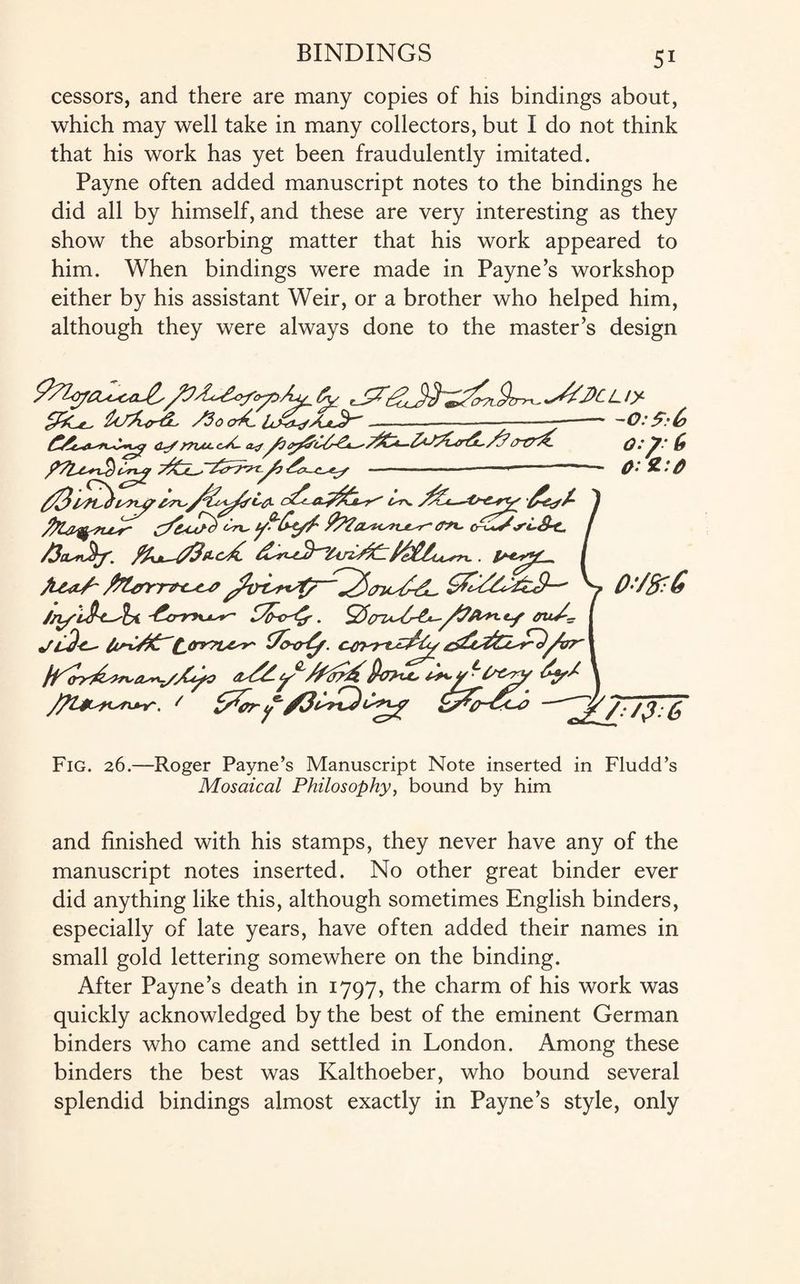 BINDINGS 51
cessors, and there are many copies of his bindings about,
which may well take in many collectors, but I do not think
that his work has yet been fraudulently imitated.
Payne often added manuscript notes to the bindings he
did all by himself, and these are very interesting as they
show the absorbing matter that his work appeared to
him. When bindings were made in Payne’s workshop
either by his assistant Weir, or a brother who helped him,
although they were always done to the master’s design
Mosaicall Philosophy by MDCLIX
The Whole Book Wash'd -0:5:6
Cleaning as much as possible the Whole Book 0:7:6
Mending the Torn places 0:2:0
Binding in Russia Leather in the very best
Manner Sewed in y^e best Manner on outside
Bands. The Back Lined with
neat Morrocco joints Double
inside
side with Common Tools. correctly Lettered for
Workmanship all y^e Work Done in y^e very best
Manner. For y^e Binding 0:18:6
1:13:6
FIG. 26.—Roger Payne’s Manuscript Note inserted in Fludd’s
Mosaical Philosophy, bound by him
and finished with his stamps, they never have any of the
manuscript notes inserted. No other great binder ever
did anything like this, although sometimes English binders,
especially of late years, have often added their names in
small gold lettering somewhere on the binding.
After Payne’s death in 1797, the charm of his work was
quickly acknowledged by the best of the eminent German
binders who came and settled in London. Among these
binders the best was Kalthoeber, who bound several
splendid bindings almost exactly in Payne’s style, only